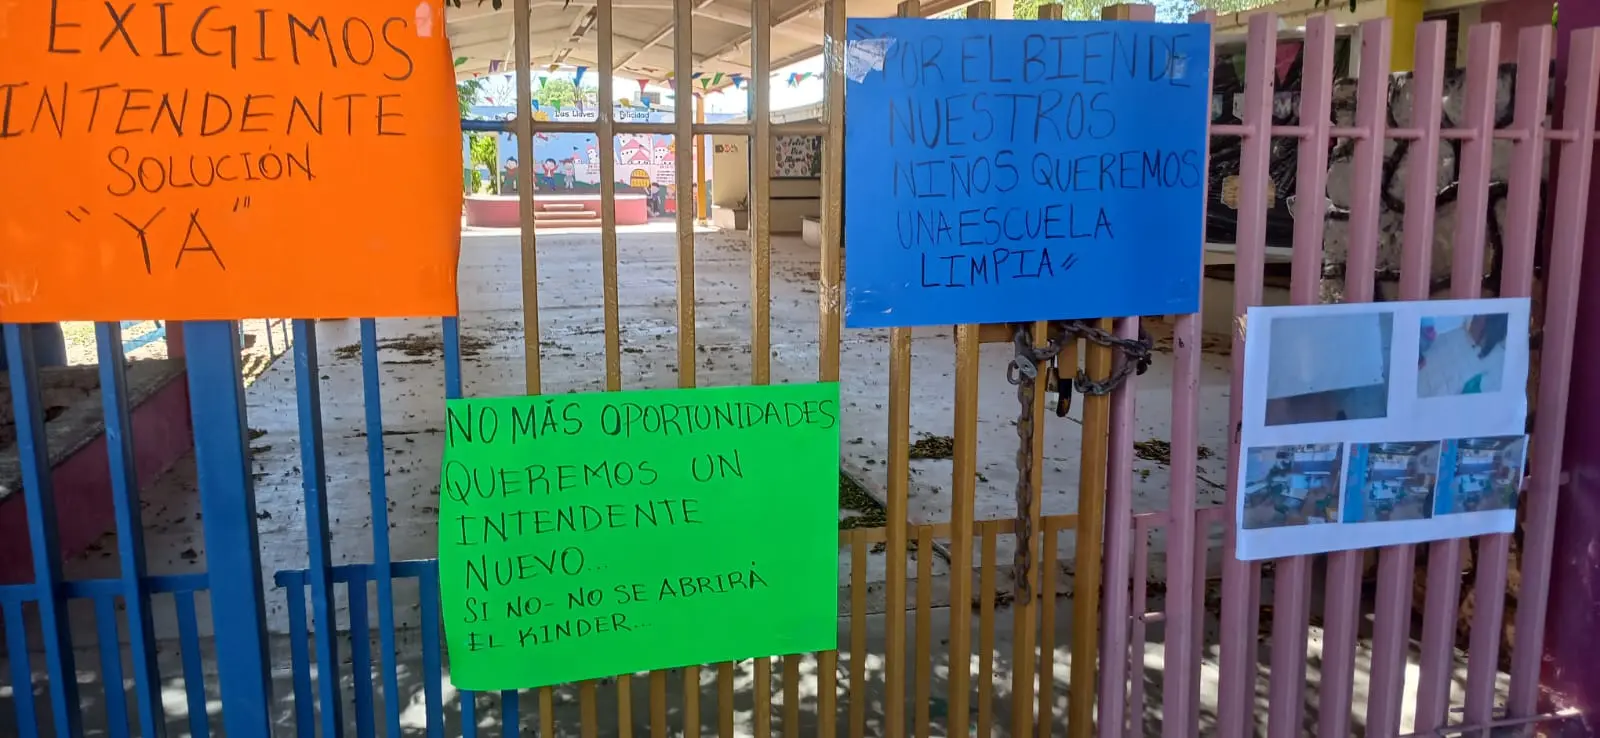 EXIGIMOS
INTENDENTE
SOLUCIÓN
"YA"
NO MÁS OPORTUNIDADES
QUEREMOS UN
INTENDENTE
NUEVO...
SI NO- NO SE ABRIRÁ
EL KINDER...
"POR EL BIEN DE
NUESTROS
NIÑOS QUEREMOS
UNA ESCUELA
LIMPIA"